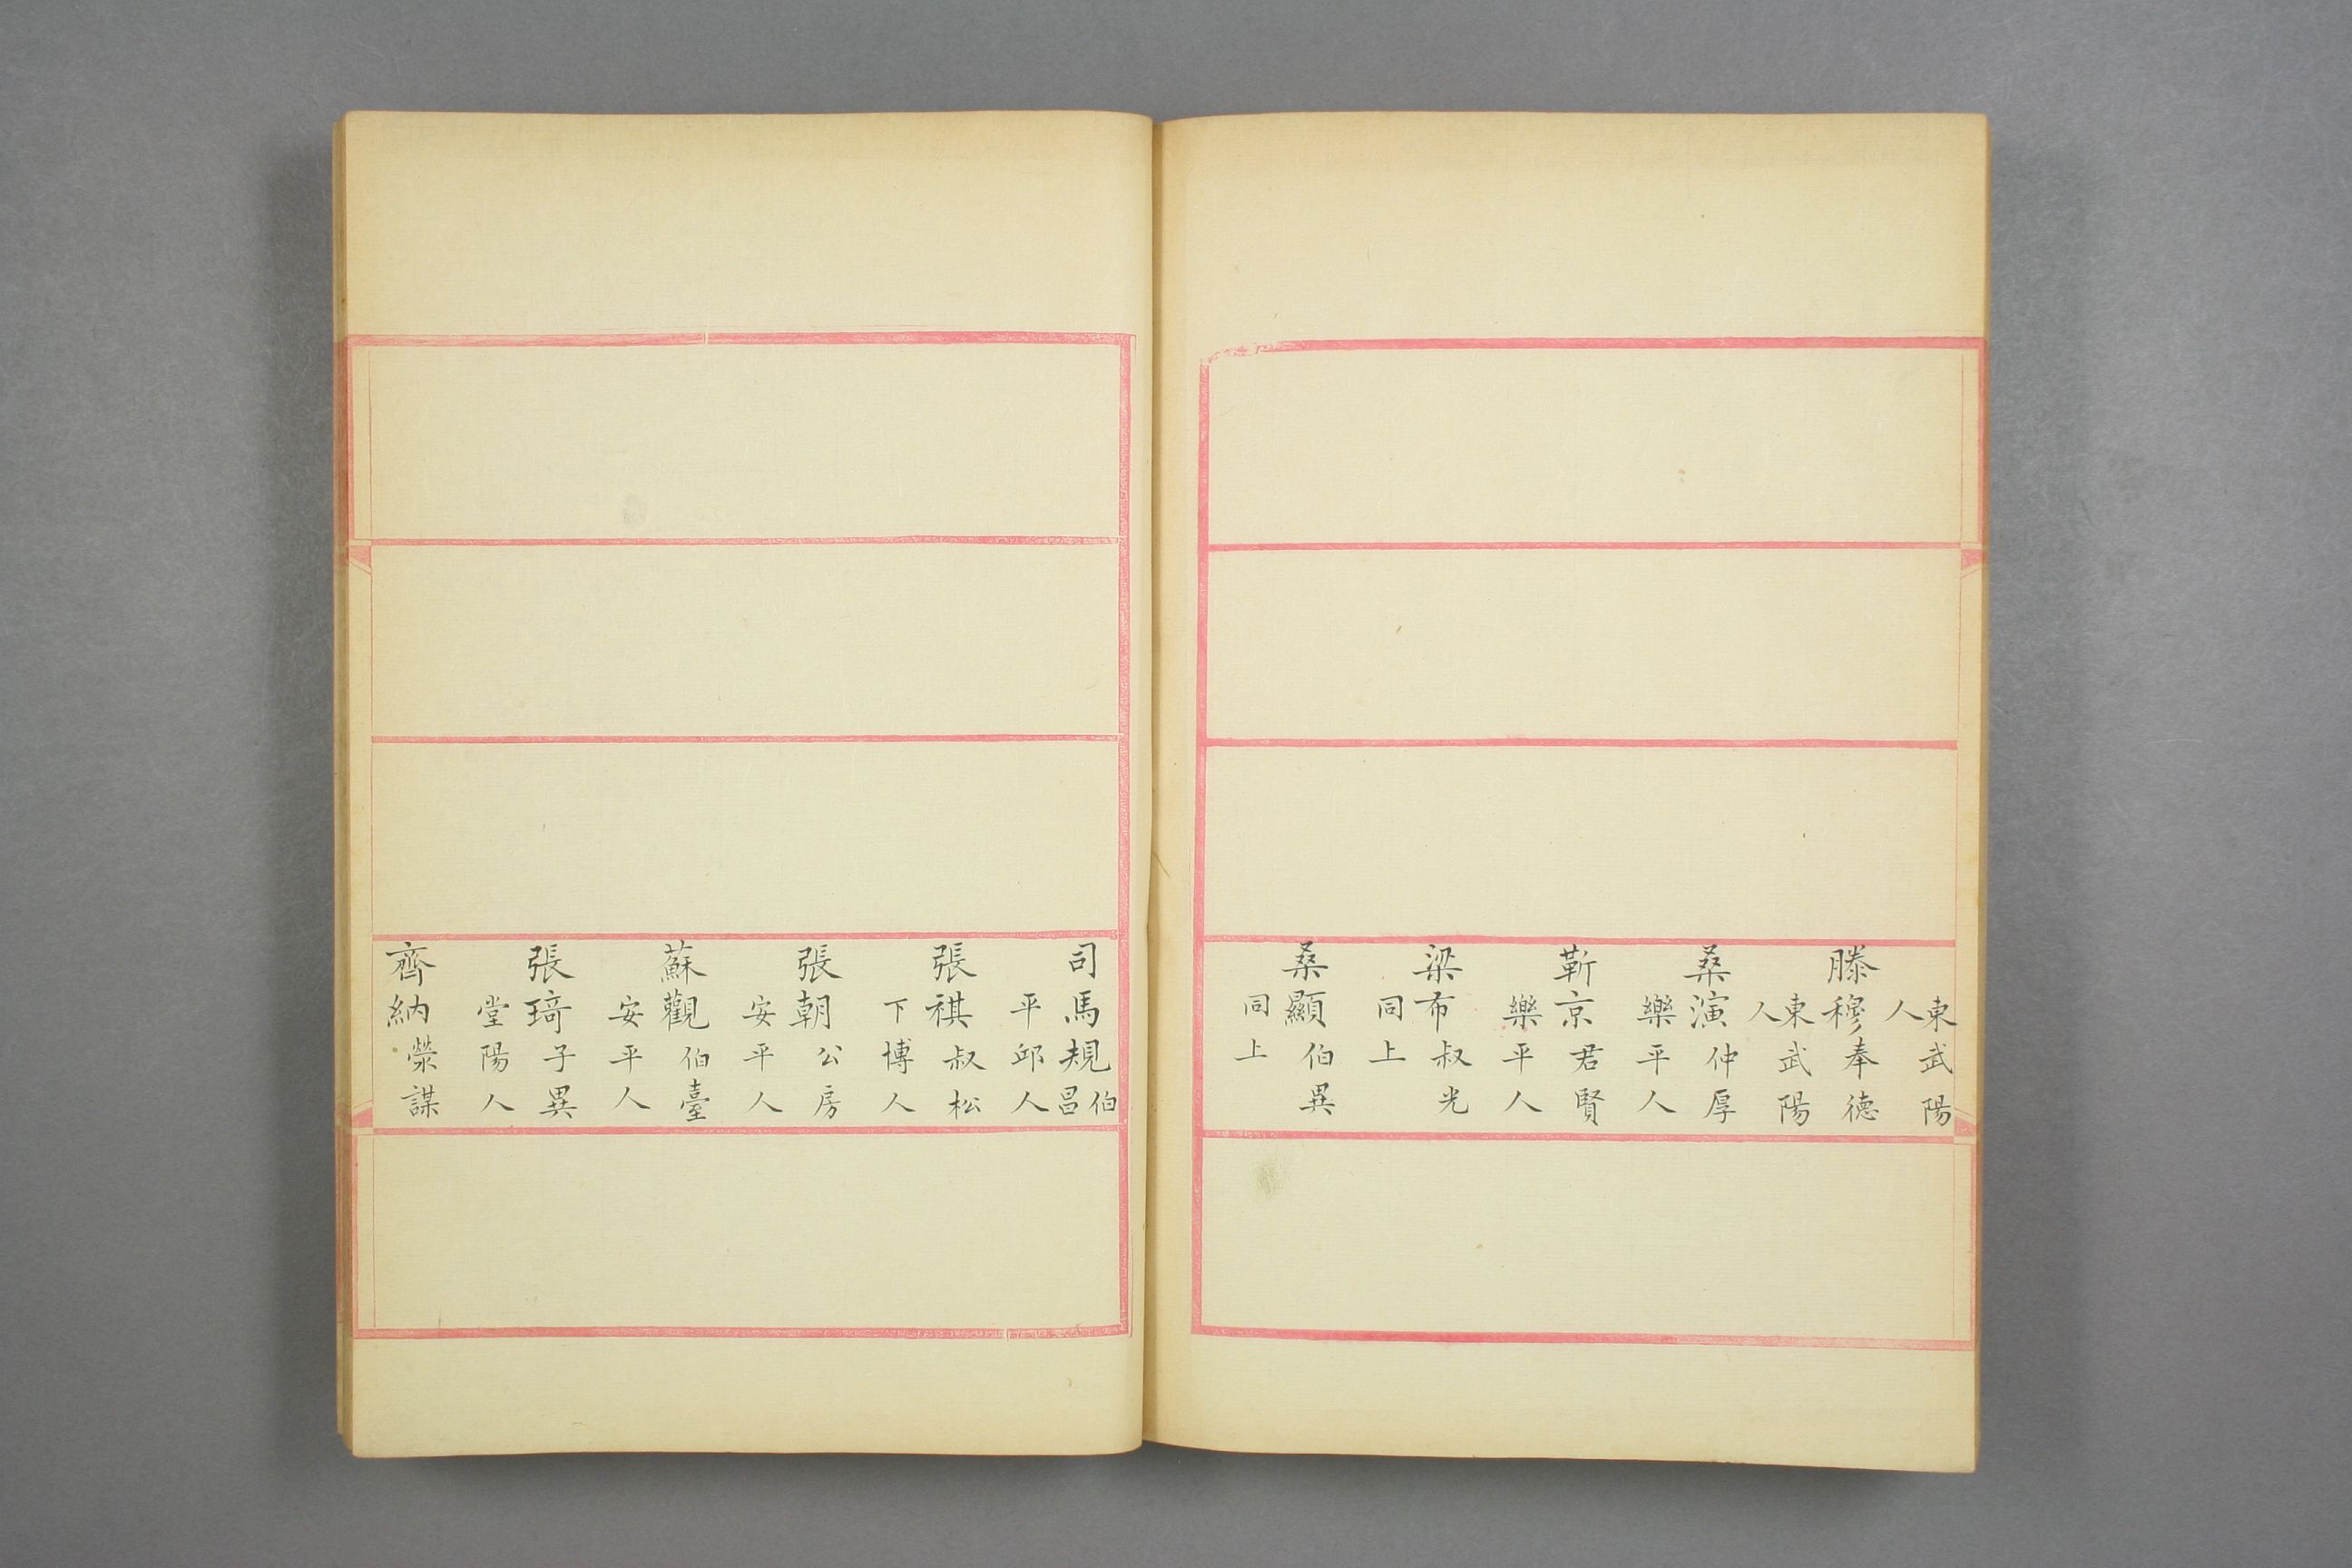 東武陽
人
滕穆奉德
東武陽
人
桑演仲厚
樂平人
靳京君賢
樂平人
梁布叔光
同上
桑顯伯異
同上
司馬規伯昌
平邱人
張祺叔松
下博人
張朝公房
安平人
蘇觀伯臺
安平人
張琦子異
堂陽人
齊納榮謀